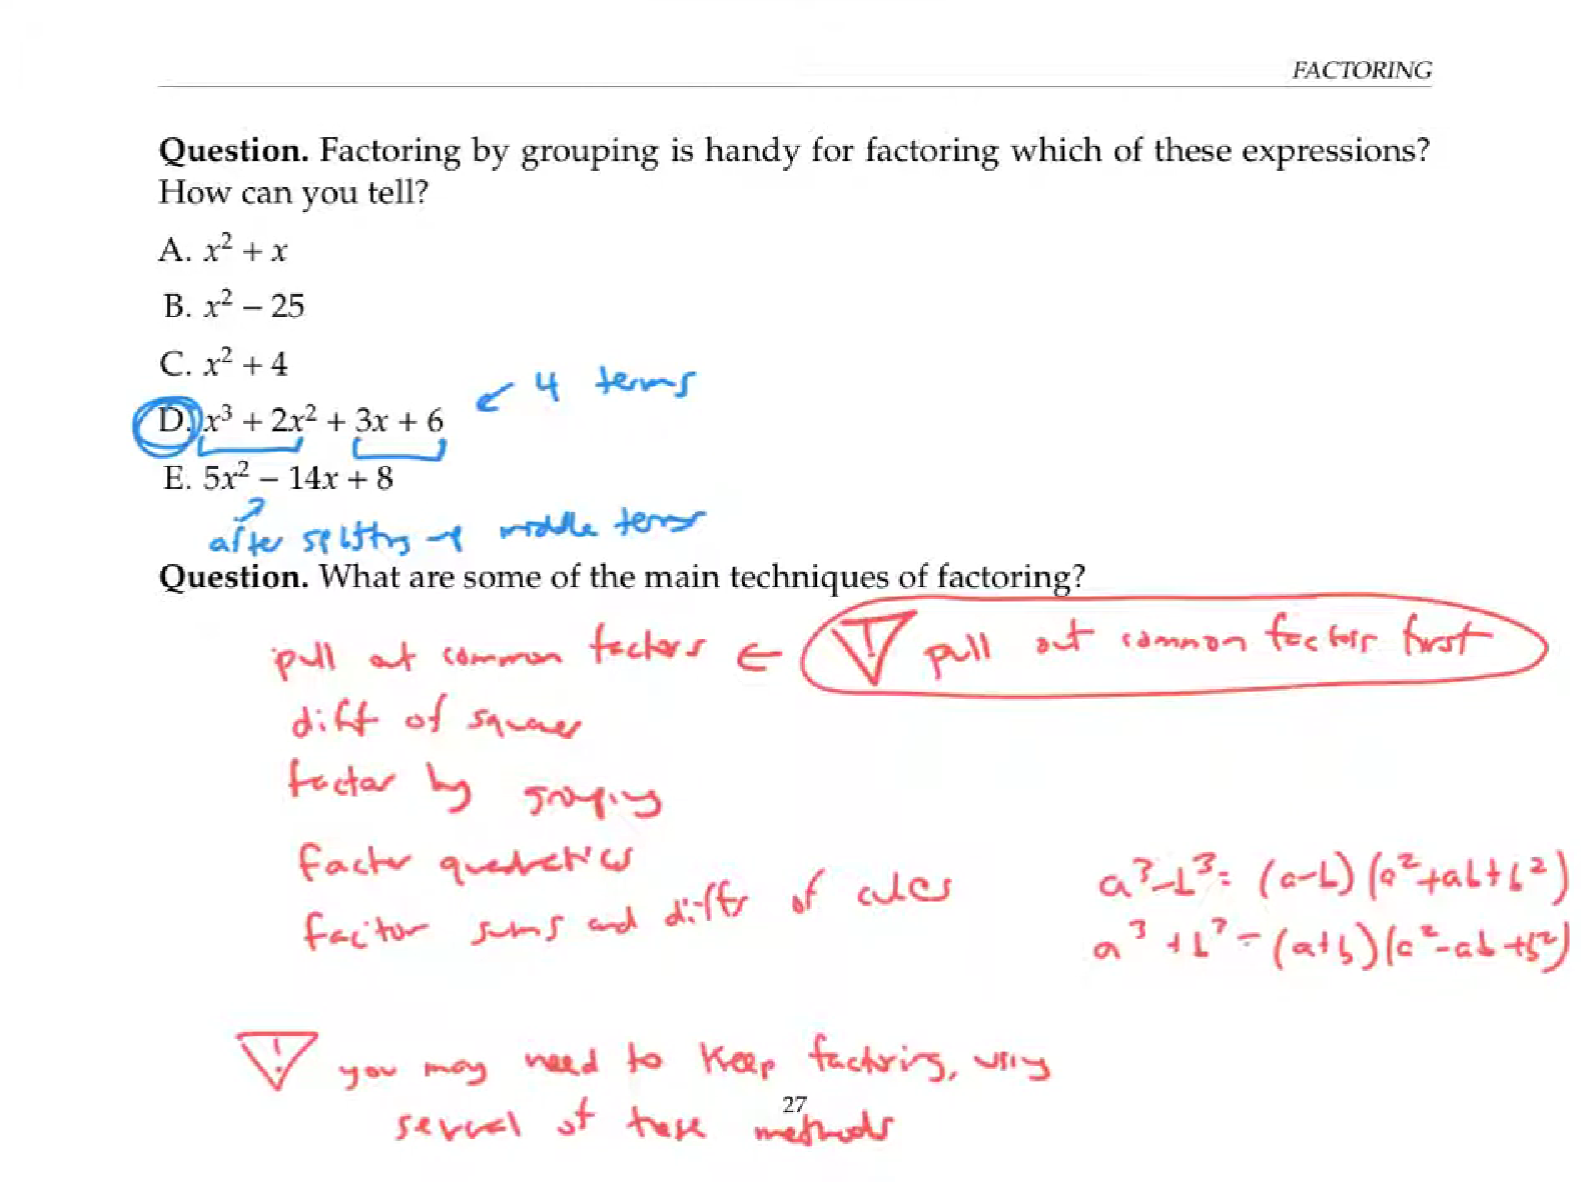 FACTORING
Question. Factoring by grouping is handy for factoring which of these expressions?
How can you tell?
A. x² + x
B. x² – 25
C. x² + 4
↙ 4 terms
D. x³ + 2x² + 3x + 6
E. 5x² – 14x + 8
after splitting middle term
Question. What are some of the main techniques of factoring?
pull out common factors ← ! pull out common factors first
diff of squares
factor by grouping
factor quadratics
factor sums and diffs of cubes
a³-b³= (a-b)(a²+ab+b²)
a³+b³=(a+b)(a²-ab+b²)
! you may need to keep factoring, using
27
several of these methods